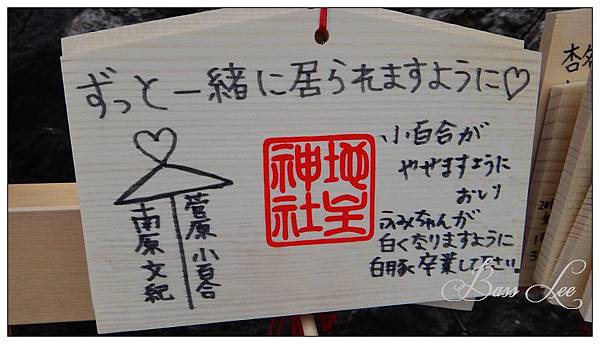 ずっと一緒に居られますように♡
小百合が
やせますように
おしり
ふみちゃんが
白くなりますように
白豚卒業して下さい。
地主
神社
菅原小百合
南原文紀
杏
Bass Lee